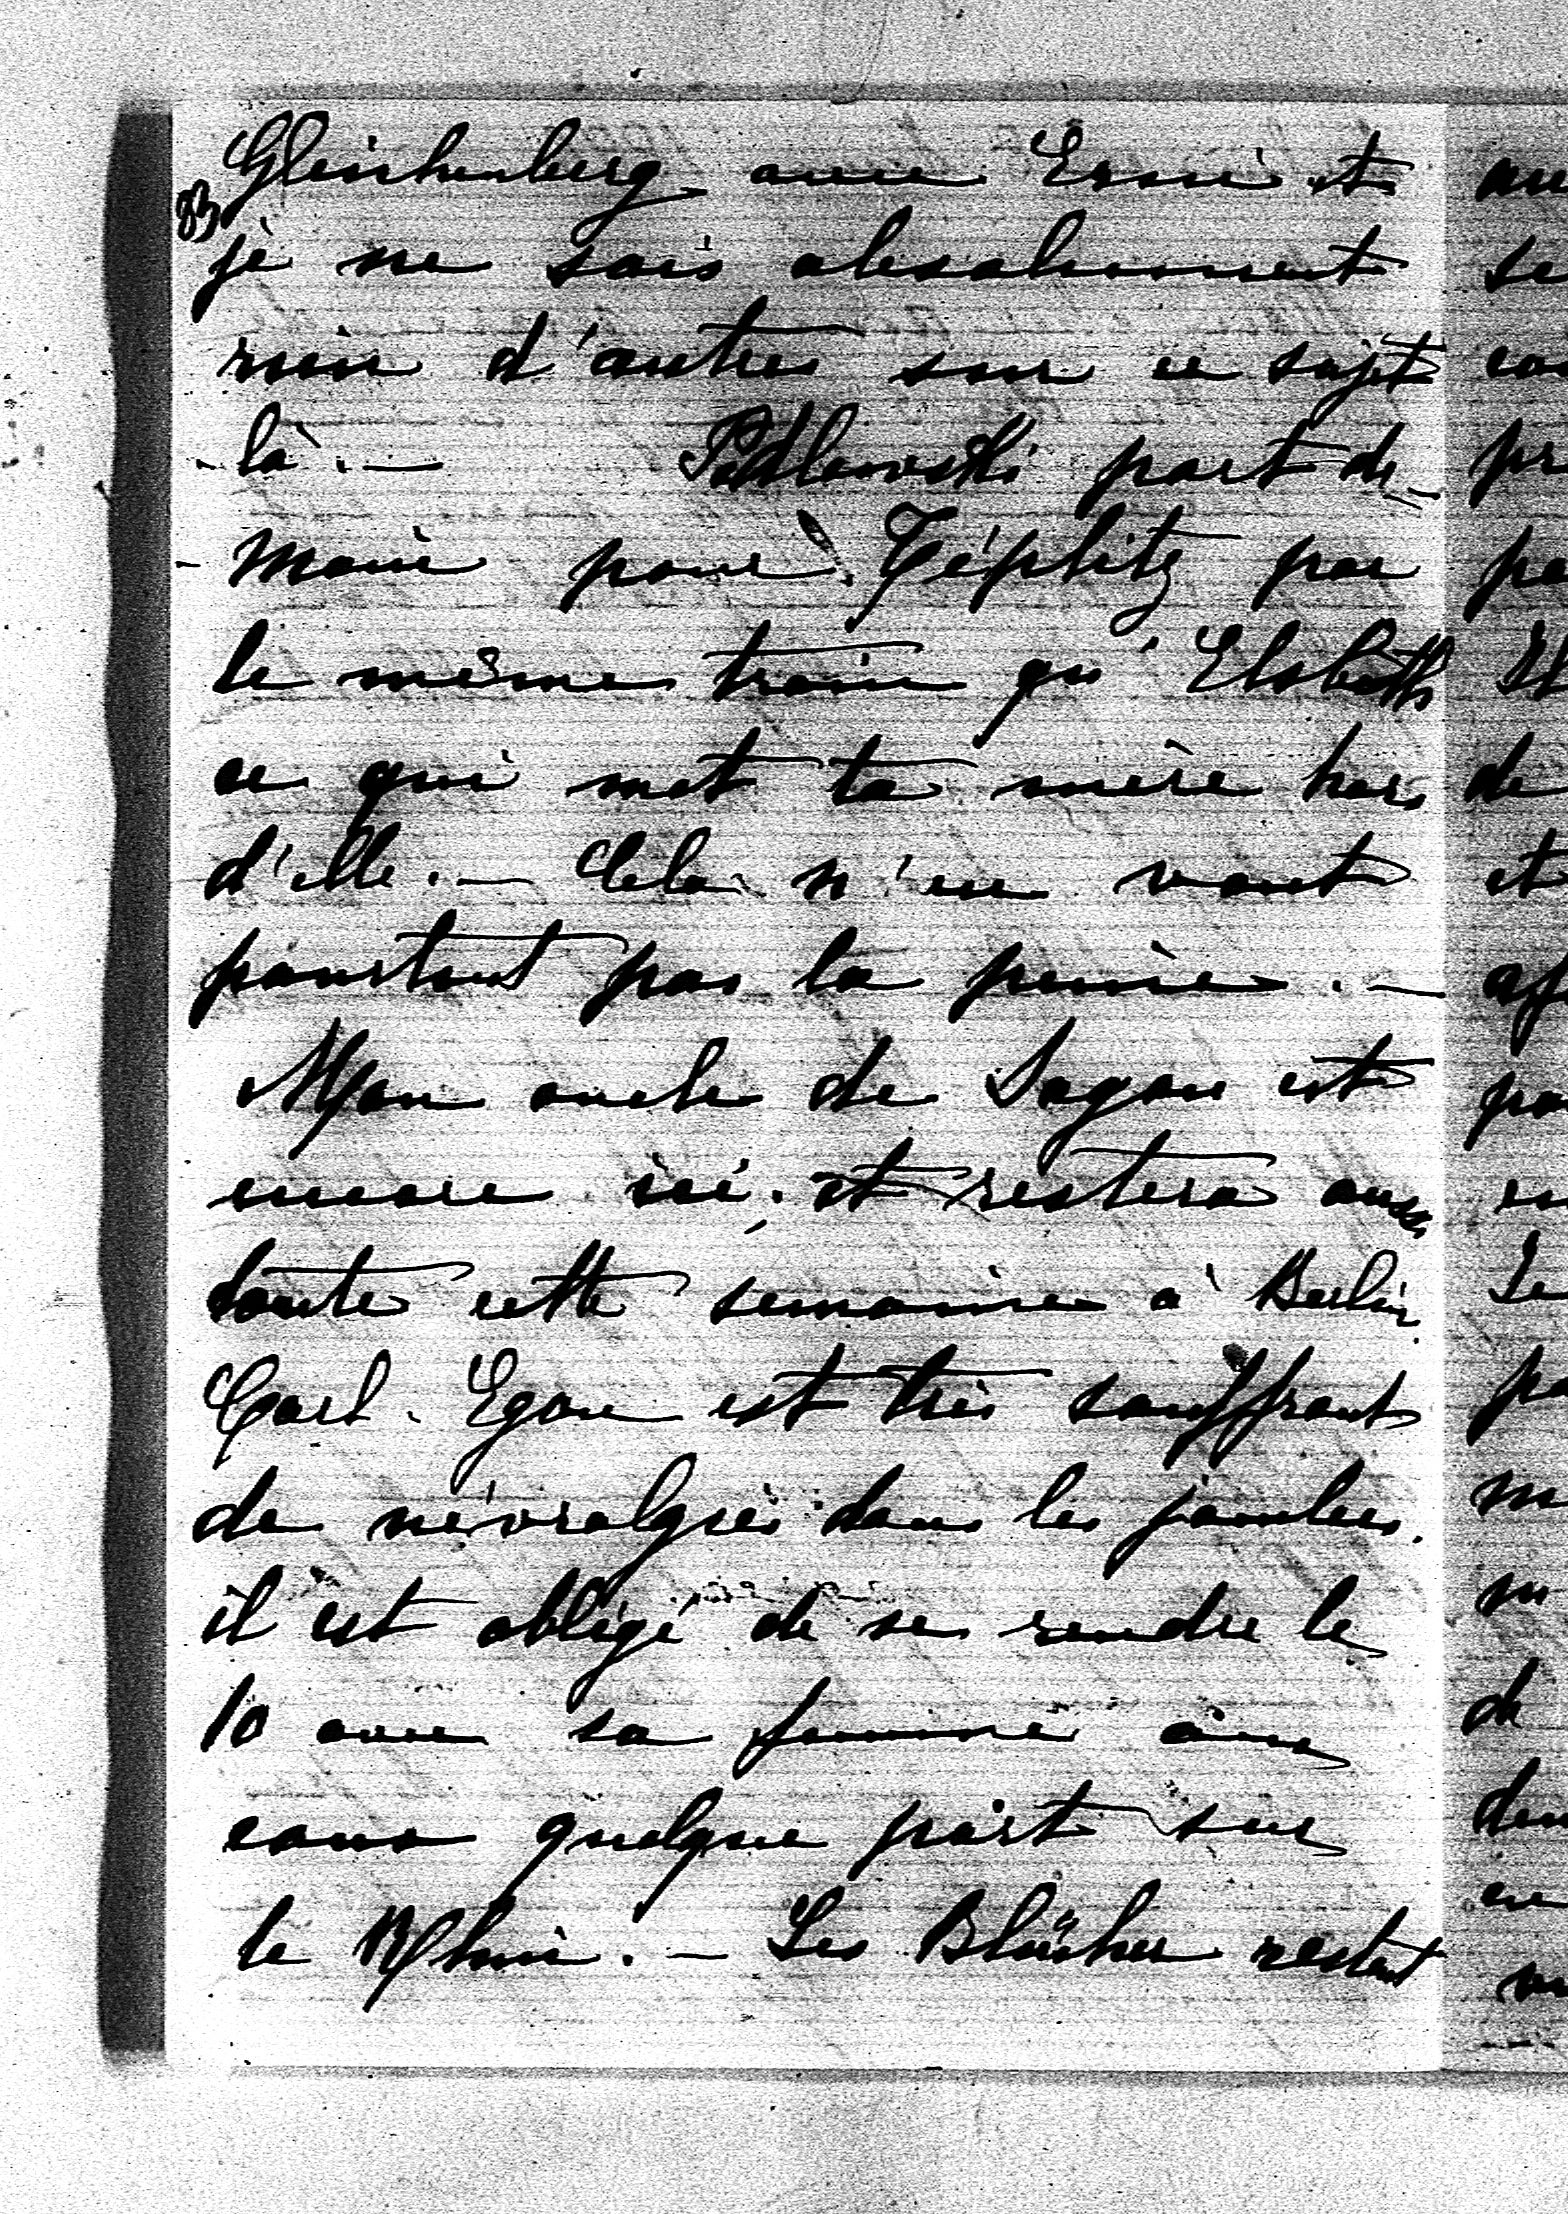 Gleichenberg avec Ernie et
83
je ne sais absolument
rien d'autres sur ce sujet
là. — Podlewski part de-
main pour Téplitz par
le même train qu'Elsbeth
ce qui met ta mère hors
d'elle. — Cela n'en vaut
pourtant pas la peine. —
Mon oncle de Sagan est
encore ici, et restera aussi
toute cette semaine à Berlin.
Carl. Egon est très souffrant
de névralgies dans les jambes.
il est obligé de se rendre le
10 avec sa femme aux
eaux quelque part sur
le Rhin. — Les Blücher restent